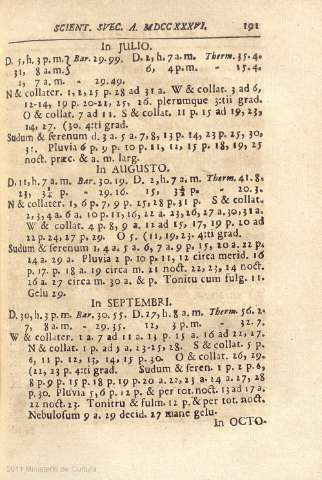 SCIENT. SVEC. A. MDCCXXXVI. 191
In JULIO.
D. 5, h. 3 p. m. } Bar. 29. 99. D. 2, h. 7 a. m. Therm. 35. 4.
31, 8 a. m. } 6, 4 p. m. - 15. 4.
1, 7 a. m. - 29. 49.
N & collater. 1, 2, 25 p. 28 ad 31 a. W & collat. 3 ad 6,
12-14, 19 p. 20-22, 25, 26. plerumque 3:tii grad.
O & collat. 7 ad 11. S & collat. 11 p. 15 ad 19, 23,
14, 27. (30. 4:ti grad.
Sudum & serenum d. 3 a. 5 a. 7, 8, 13 p. 14, 23 p. 25, 30,
31. Pluvia 6 p. 9 p. 10 p. 11, 12, 15 p. 18, 19, 25
noct. præc. & a. m. larg.
In AUGUSTO.
D. 11, h. 7 a. m. Bar. 30. 19. D. 2, h. 7 a. m. Therm. 41. 8.
23, 3½ p. - 29. 16. 15, 3½ p. - 20. 3.
N & collater. 1, 6 p. 7, 9 p. 25, 28 p. 31 p. S & collat.
2, 3, 4 a. 6 a. 10 p. 11, 16, 22 a. 23, 26, 27 a. 30, 31 a.
W & collat. 4 p. 8, 9 a. 12 ad 15, 17, 19 p. 20 ad
22 p. 24, 27 p. 29. O 5. (11, 19, 23. 4:ti grad.
Sudum & serenum 1, 4 a. 5 a. 6, 7 a. 9 p. 15, 20 a. 22 p.
24 a. 29 a. Pluvia 2 p. 10 p. 11, 12 circa merid. 16
p. 17. p. 18 a. 19 circa m. 21 noct. 22, 23, 24 noct.
26 a. 27 circa m. 30 a. & p. Tonitru cum fulg. 11.
Gelu 29.
In SEPTEMBRI.
D. 30, h. 3 p. m. Bar. 30. 55. D. 27, h. 8 a. m. Therm. 56. 2.
7, 8 a. m. - 29. 35. 12, 3 p. m. - 32. 7.
W & collater. 1 a. 7 ad 11 a. 13 p. 15 a. 16 ad 22, 27.
N & collat. 1 p. ad 3, a. 23-25, 28. S & collat. 5 p.
6, 11 p. 12, 13, 14, 15 p. 30. O & collat. 26, 29.
(22, 23 p. 4:ti grad. Sudum & seren. 1 p. 2 p. 6,
8 p. 9 p. 15 p. 18 p. 19 p. 20 a. 22, 23 a. 24 a. 27, 28
p. 30. Pluvia 5, 6 p. 12 p, & per tot. noct. 13 ad 17 a,
22 noct. 23. Tonitru & fulm. 12 p, & per tot. noct.
Nebulosum 9 a. 29 decid. 27 mane gelu.
In OCTO-
2011 Ministerio de Cultura